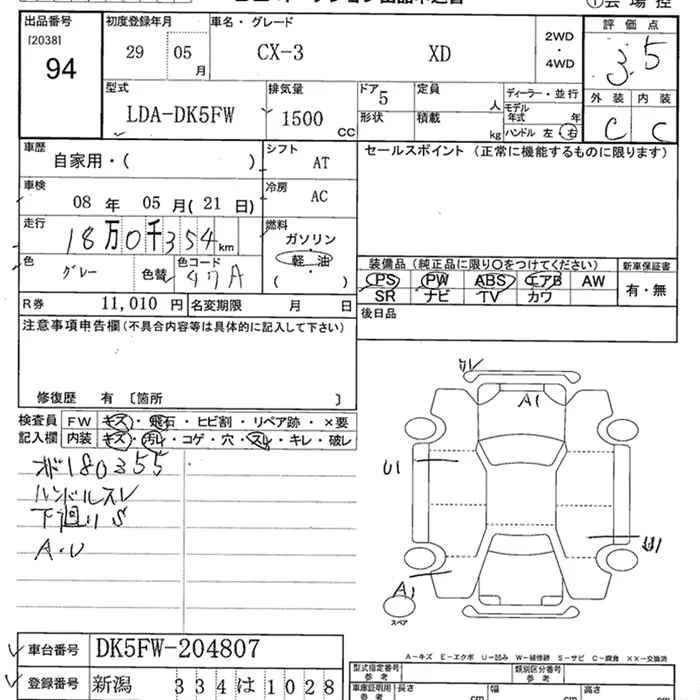 ①会場控
出品番号 初度登録年月 車名・グレード 2WD・4WD 評価点
[2038] 94 29 05月 CX-3 XD 3.5
型式 排気量 ドア 定員 ディーラー・並行 外装 内装
LDA-DK5FW 1500 CC 5 人 モデル年式 年 C C
形状 積載 kg ハンドル 左 右
車歴 シフト セールスポイント (正常に機能するものに限ります)
自家用・( ) AT
車検 冷房
08年 05月(21日) AC
走行 燃料
18万0千354km ガソリン
色 色替 色コード 軽・油
グレー 47A ( )
装備品 (純正品に限り○をつけてください) 新車保証書
PS PW ABS エアB AW 有・無
SR ナビ TV カワ
R券 11,010円 名変期限 月 日
後日品
注意事項申告欄 (不具合内容等は具体的に記入して下さい)
修復歴 有 〔箇所 〕
検査員 FW キズ・飛石・ヒビ割・リペア跡・×要
記入欄 内装 キズ・汚レ・コゲ・穴・スレ・キレ・破レ
180355
ハンドルスレ
下回りS
A・U
A1
U1
A1
スペア
A-キズ E-エクボ U-凹み W-補修跡 S-サビ C-腐食 XX-交換済
車台番号 DK5FW-204807
型式指定番号 参考 類別区分番号 参考
登録番号 新潟 334 は 1028
車庫証明用 参考 長さ cm 幅 cm 高さ cm